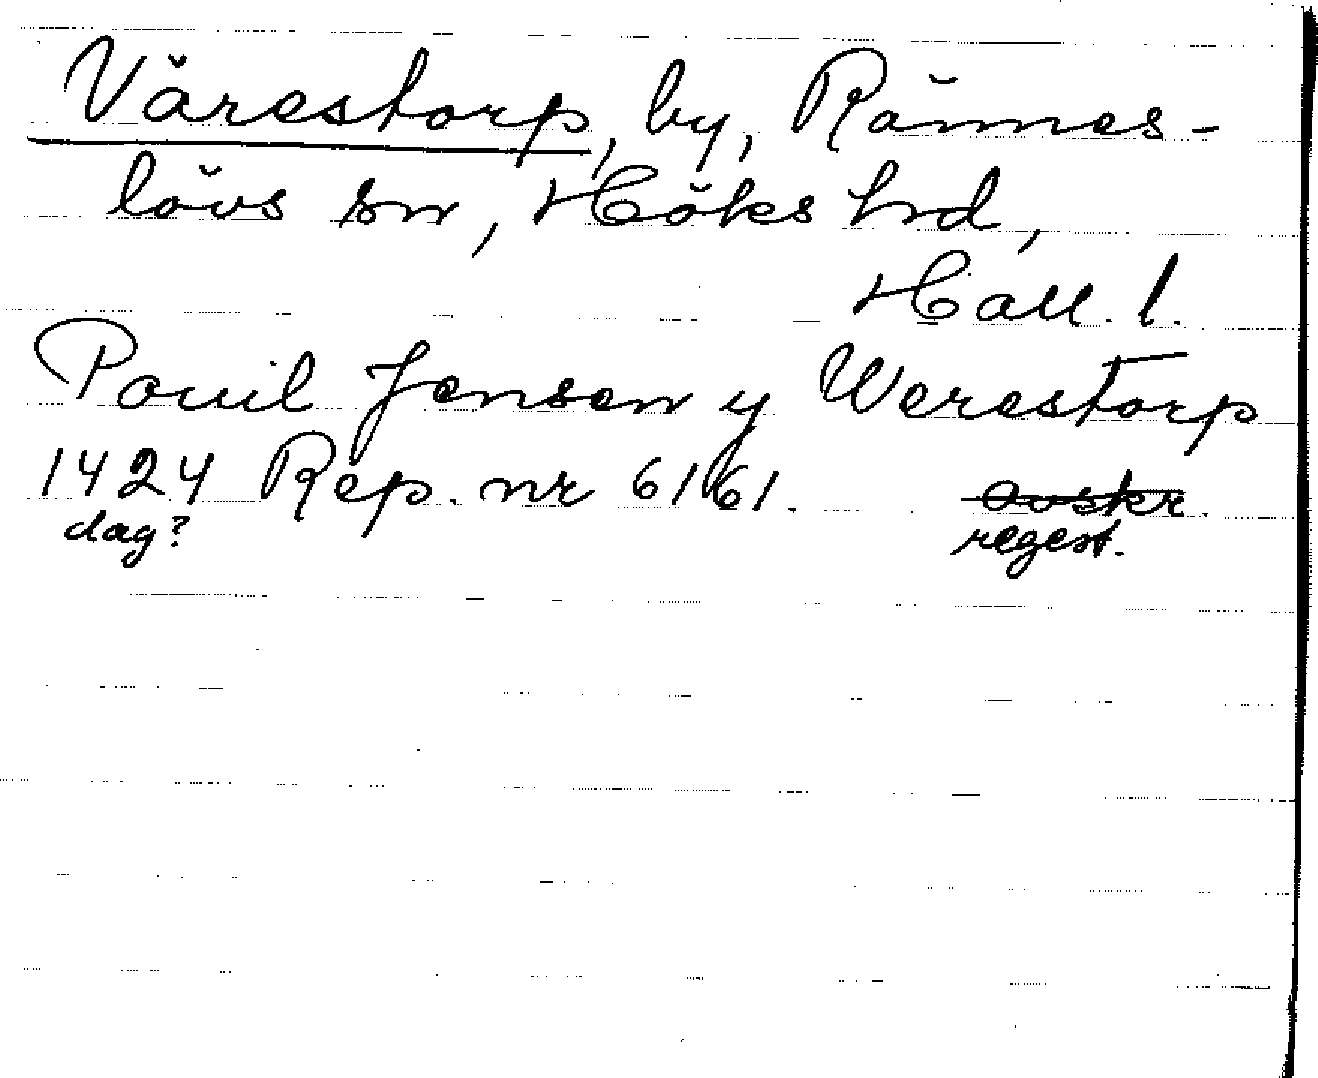 Värestorp, by, Rännes-
lövs sn, Höks hrd,
Hall. l.
Pouil Jensen y Werestorp
1424 Rep. nr 6161. avskr.
dag? regest.